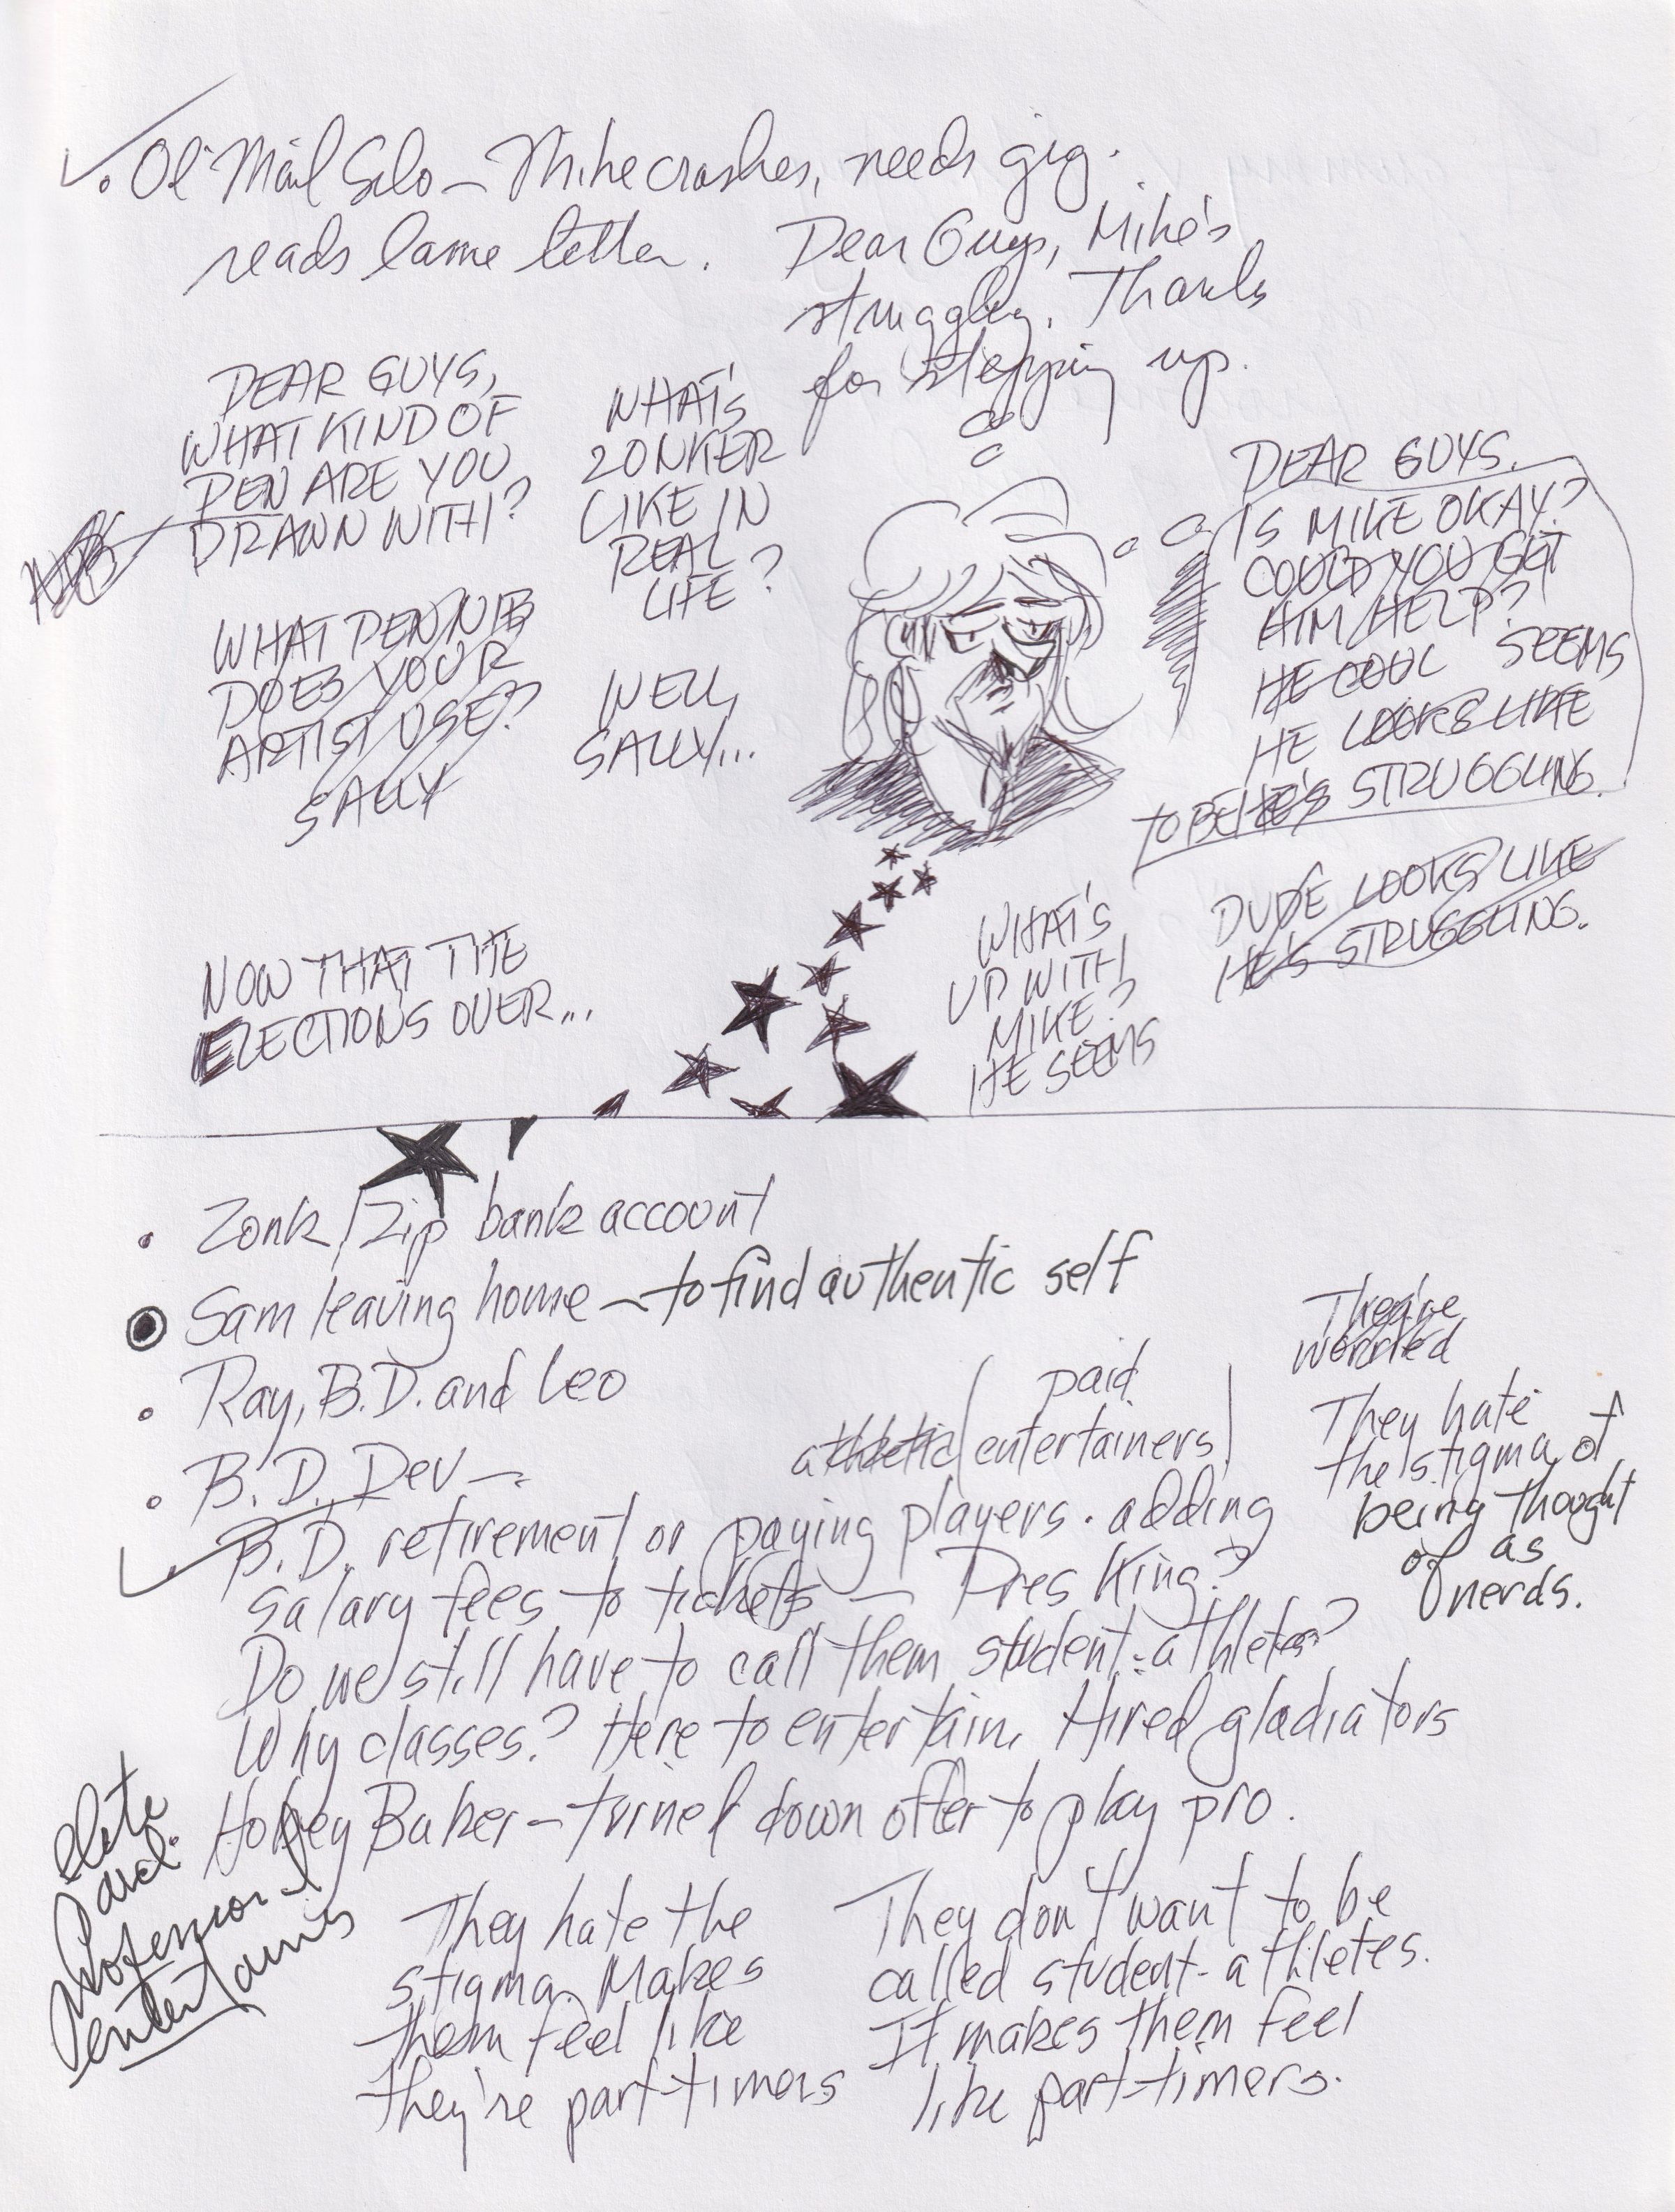 Ol' Mail Silo — Mike crashes, needs gig.
reads lame letter.
Dear Guys, Mike's
struggling. Thanks
for stepping up.
DEAR GUYS,
WHAT KIND OF
PEN ARE YOU
DRAWN WITH?
WHAT PEN NIB
DOES YOUR
ARTIST USE?
SALLY
WHAT'S
ZONKER
LIKE IN
REAL
LIFE?
WELL,
SALLY...
DEAR GUYS.
IS MIKE OKAY?
COULD YOU GET
HIM HELP?
HE COOL SEEMS
HE LOOKS LIKE
TO BE HE'S STRUGGLING.
DUDE LOOKS LIKE
HE'S STRUGGLING.
WHAT'S
UP WITH
MIKE?
HE SEEMS
NOW THAT THE
ELECTIONS OVER...
• Zonk/Zip bank account
Sam leaving home — to find authentic self
• Ray, B.D. and Leo
• B.D. Dev —
athletic paid
entertainers
B.D. retirement or paying players. adding
salary fees to tickets — Pres King?
Do we still have to call them student-athletes?
Why classes? Here to entertain. Hired gladiators
Hobey Baker — turned down offer to play pro.
They're
worried
They hate
the stigma of
being thought
of as
nerds.
elite
paid.
professional
entertainers
They hate the
stigma. Makes
them feel like
they're part-timers
They don't want to be
called student-athletes.
It makes them feel
like part-timers.